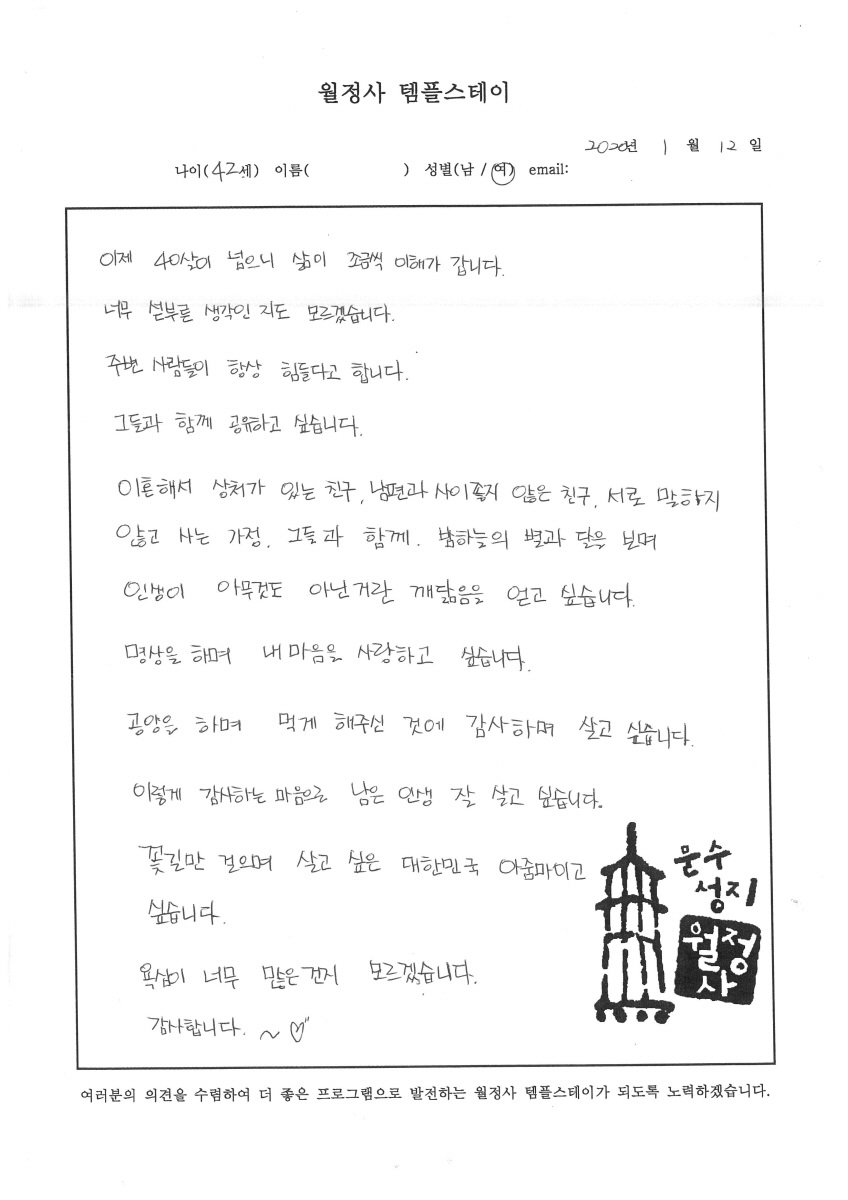 월정사 템플스테이
2020년 1월 12일
나이(42세) 이름( ) 성별(남 / 여) email:
이제 40살이 넘으니 삶이 조금씩 이해가 갑니다.
너무 섣부른 생각인 지도 모르겠습니다.
주변 사람들이 항상 힘들다고 합니다.
그들과 함께 공유하고 싶습니다.
이혼해서 상처가 있는 친구, 남편과 사이좋지 않은 친구, 서로 말하지
않고 사는 가정. 그들과 함께. 밤하늘의 별과 달을 보며
인생이 아무것도 아닌거란 깨닮음을 얻고 싶습니다.
명상을 하며 내 마음을 사랑하고 싶습니다.
공양을 하며 먹게 해주신 것에 감사하며 살고 싶습니다.
이렇게 감사하는 마음으로 남은 인생 잘 살고 싶습니다.
꽃길만 걸으며 살고 싶은 대한민국 아줌마이고
싶습니다.
욕심이 너무 많은건지 모르겠습니다.
감사합니다. ~ ♡"
문수
성지
월정
사
여러분의 의견을 수렴하여 더 좋은 프로그램으로 발전하는 월정사 템플스테이가 되도록 노력하겠습니다.